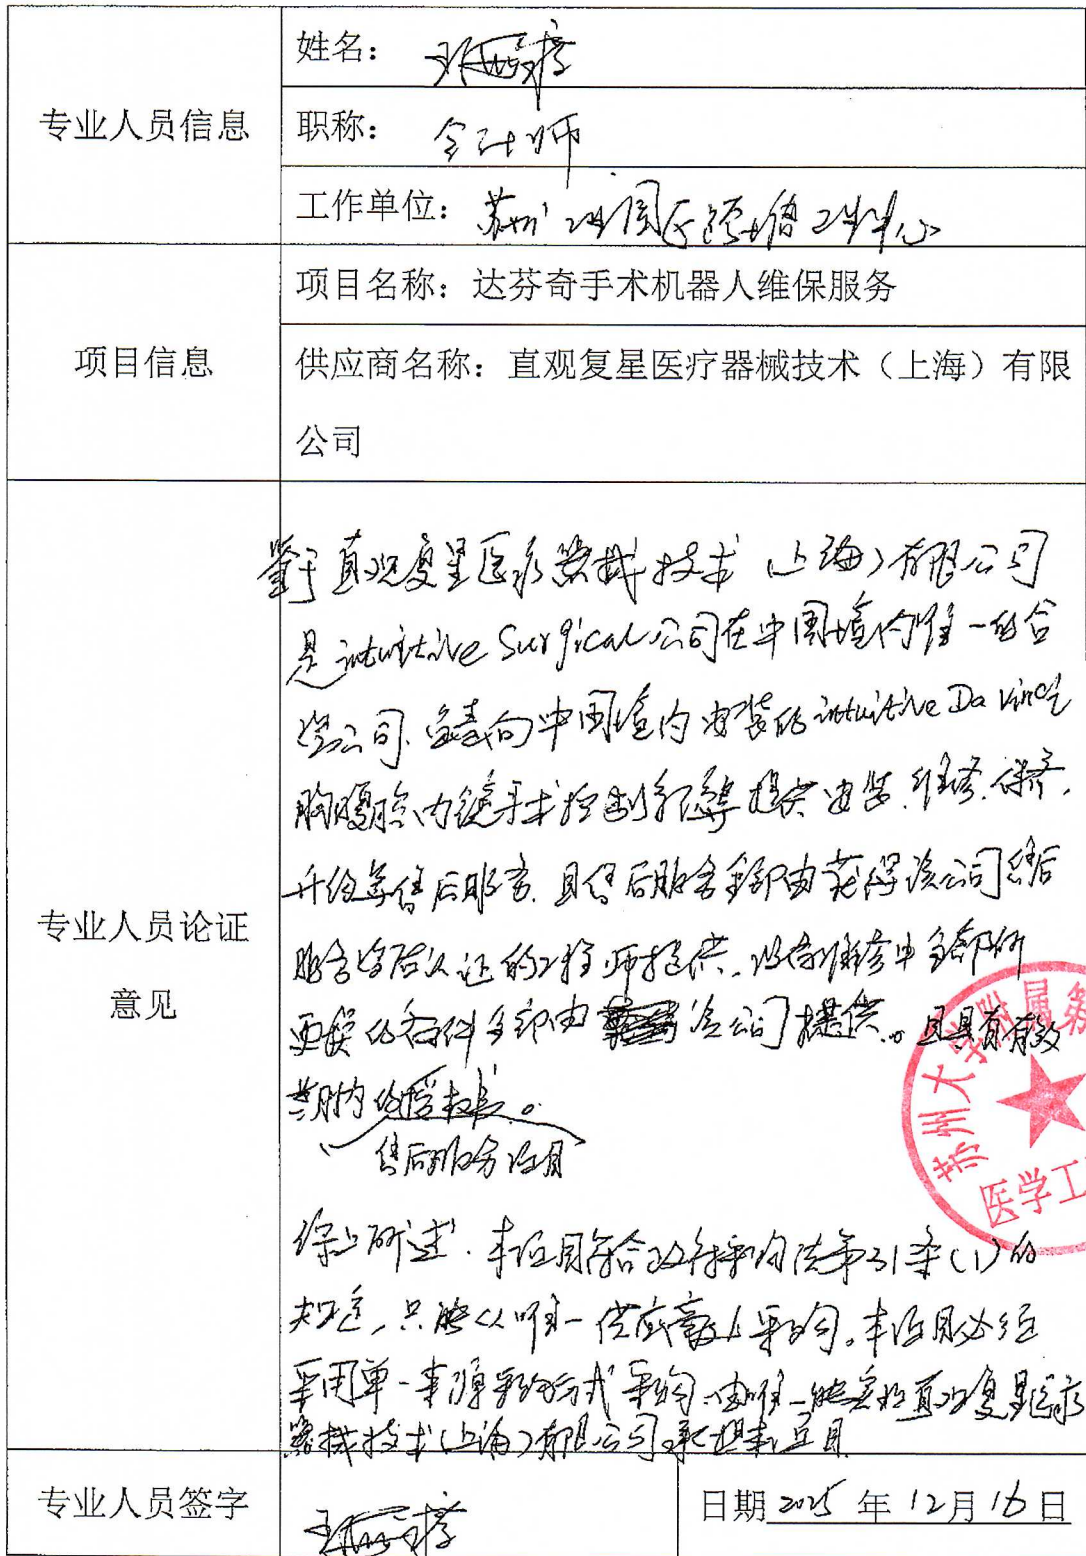 专业人员信息
姓名：
职称： 会计师
工作单位： 苏州
项目信息
项目名称：达芬奇手术机器人维保服务
供应商名称：直观复星医疗器械技术（上海）有限
公司
专业人员论证
意见
鉴于直观复星医疗器械技术（上海）有限公司
是intuitive Surgical公司在中国境内唯一的合
资公司. 负责向中国境内安装的intuitive Da Vinci
胸腹腔内镜手术控制系统提供安装.维修.保养.
升级等售后服务.且售后服务全部由获得该公司售后
服务资质认证的工程师提供.设备维修中全部所
更换的备件全部由 该公司提供。且具有有效
期内的授权书。
售后服务项目
综上所述.本项目符合政府采购法第31条(1)的
规定,只能从唯一供应商处采购。本项目必须
采用单一来源采购方式采购.由唯一 直观复星医疗
器械技术(上海)有限公司承担本项目
苏州大学附属第
医学工
专业人员签字
日期 2025 年 12月 16日